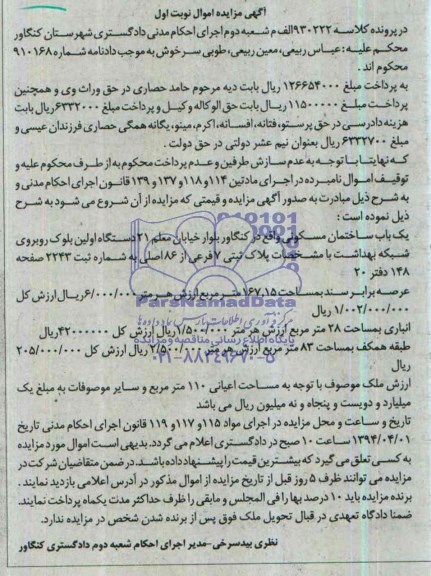 آگهی مزایده اموال نوبت اول
در پرونده کلاسه ۹۳۰۲۲۲ الف م شعبه دوم اجرای احکام مدنی دادگستری شهرستان کنگاور
محکم علیه: عباس ربیعی، معین ربیعی، طوبی سرخوش به موجب دادنامه شماره ۹۱۰۱۶۸
محکوم اند.
به پرداخت مبلغ ۱۲۶۶۵۴۰۰۰ ریال بابت دیه مرحوم حامد حصاری در حق وراث وی و همچنین
پرداخت مبلغ ۱۱۵۰۰۰۰۰ ریال بابت حق الوکاله وکیل و پرداخت مبلغ ۶۳۳۲۰۰۰ ریال بابت
هزینه دادرسی در حق پرستو، فتانه، افسانه، اکرم، مینو، یگانه همگی حصاری فرزندان عیسی و
مبلغ ۶۳۳۲۷۰۰ ریال بعنوان نیم عشر دولتی در حق دولت.
که نهایتا با توجه به عدم سازش طرفین و عدم پرداخت محکوم به از طرف محکوم علیه و
توقیف اموال نامبرده در اجرای مادتین ۱۱۴ و ۱۱۸ و ۱۳۷ و ۱۳۹ قانون اجرای احکام مدنی به
به شرح ذیل مبادرت به صدور آگهی مزایده و قیمتی که مزایده از آن شروع می شود به شرح
ذیل نموده است:
یک باب ساختمان مسکونی واقع در کنگاور بلوار خیابان معلم ۲۱ دستگاه اولین بلوک روبروی
شبکه بهداشت با مشخصات پلاک ثبتی ۷ فرعی از ۸۶ اصلی به شماره ثبت ۲۲۴۳ صفحه
۱۴۸ دفتر ۲۰
عرصه برابر سند بمساحت ۱۶۷.۱۵ متر مربع ارزش هر متر ۶/۰۰۰/۰۰۰ ریال ارزش کل
۱/۰۰۲/۰۰۰/۰۰۰ ریال
انباری بمساحت ۲۸ متر مربع ارزش هر متر ۱/۵۰۰/۰۰۰ ریال ارزش کل ۴۲۰۰۰۰۰۰ ریال
طبقه همکف بمساحت ۸۳ متر مربع ارزش هر متر ۲/۵۰۰/ ریال ارزش کل ۲۰۵/۰۰۰/۰۰۰
ریال
ارزش ملک موصوف با توجه به مساحت اعیانی ۱۱۰ متر مربع و سایر موصوفات به مبلغ یک
میلیارد و دویست و پنجاه و نه میلیون ریال می باشد
تاریخ و ساعت و محل مزایده در اجرای مواد ۱۱۵ و ۱۱۷ و ۱۱۹ قانون اجرای احکام مدنی تاریخ
۱۳۹۴/۰۴/۰۱ ساعت ۱۰ صبح در دادگستری اعلام می گردد. بدیهی است اموال مورد مزایده
به کسی تعلق می گیرد که بیشترین قیمت را پیشنهاد داده باشد. در ضمن متقاضیان شرکت در
مزایده می توانند ظرف ۵ روز قبل از تاریخ مزایده از اموال مذکور در آدرس اعلامی بازدید نمایند.
برنده مزایده باید ۱۰ درصد بها را فی المجلس و مابقی را ظرف حداکثر مدت یکماه پرداخت نمایند.
ضمنا دادگاه تعهدی در قبال تحویل ملک فوق پس از برنده شدن شخص در مزایده ندارد.
نظری بیدسرخی-مدیر اجرای احکام شعبه دوم دادگستری کنگاور
ParsNamadData
پایگاه اطلاع رسانی مناقصه و مزایده
۰۲۱-۸۸۳۴۹۶۷۰-۵